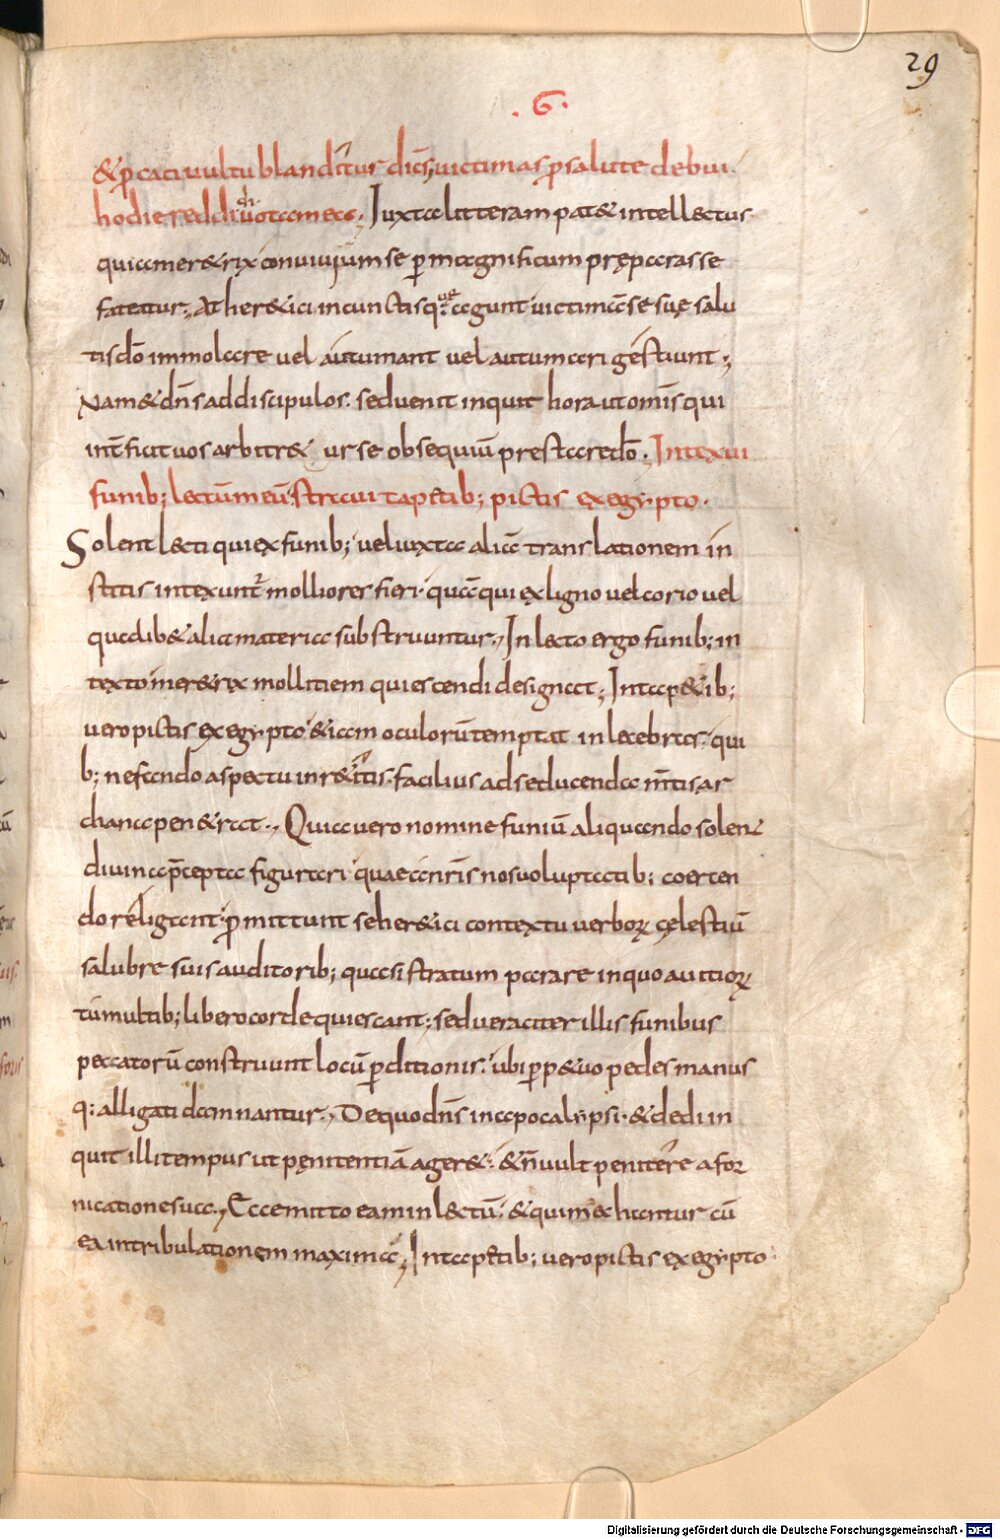 29
.G.
& ꝑcaci uultu blanditur diceńs, uictimas ꝓ salute debui.
hodie reddidi uota mea; Iuxta litteram pat& intellectus
quia mer&rix conuiuium se ꝑ magnificum pręparasse
fateatur; At her&ici in cunctis quę agunt uictimā se suę salu
tis dō immolare uel autumant uel autumari gestiunt;
Nam & dn̄s ad discipulos. sed uenit inquit hora ut omīs qui
int̄ficit uos arbitr& ur se obsequiū prestare dō. Intexui
funib; lectum meū straui tapetib; pictis ex egypto.
Solent lecti qui ex funib; uel iuxta aliā translationem in
stitis intexunt᷑ molliores fieri quā qui ex ligno uel corio uel
quadlib& alia materia substruuntur; In lecto ergo funib; in
texto mer&rix mollitiem quiescendi designat; In tap&ib;
uero pictis ex egypto &iam oculorū temptat inlecebras. qui
b; nefando aspectu inr&itis. facilius ad seducenda m̄tis ar
chana pen&rat; Quia uero nomine funiū aliquando solen&
diuina p̄cepta figurari quae a nr̄is nos uoluptatib; coercen
do religant. ꝑmittunt se her&ici contextu uerboꝝ cęlestiū
salubre suis auditorib; quasi stratum parare in quo a uitioꝝ
tumultib; libero corde quiescant; sed ueraciter illis funibus
peccatorū construunt locū ꝑditionis. ubi ꝑp&uo pedes manus
q; alligati damnantur; De quo dn̄s in apocalypsi. & dedi in
quit illi tempus ut pęnitentiā ager&. & n̄ uult penitere a for
nicatione sua; Ecce mitto eam in l&tū. & qui męchantur cū
ea in tribulationem maximā; In tapetib; uero pictis ex egypto
Digitalisierung gefördert durch die Deutsche Forschungsgemeinschaft - DFG